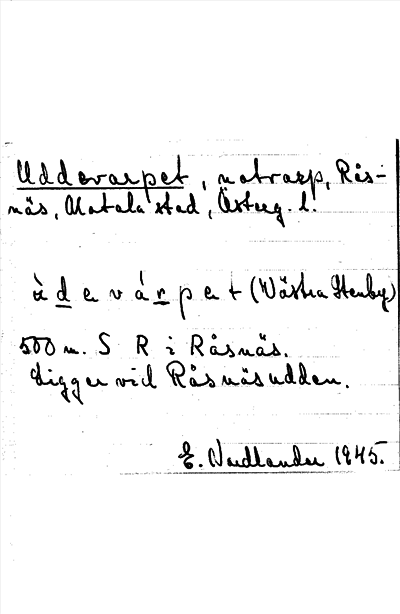 Uddevarpet, notvarp, Rås-
näs, Motala stad, Österg. l.
ù d e v á r p e t (Västra Stenby)
500 m. S R i Råsnäs.
Ligger vid Råsnäsudden.
E. Nordlander 1945.